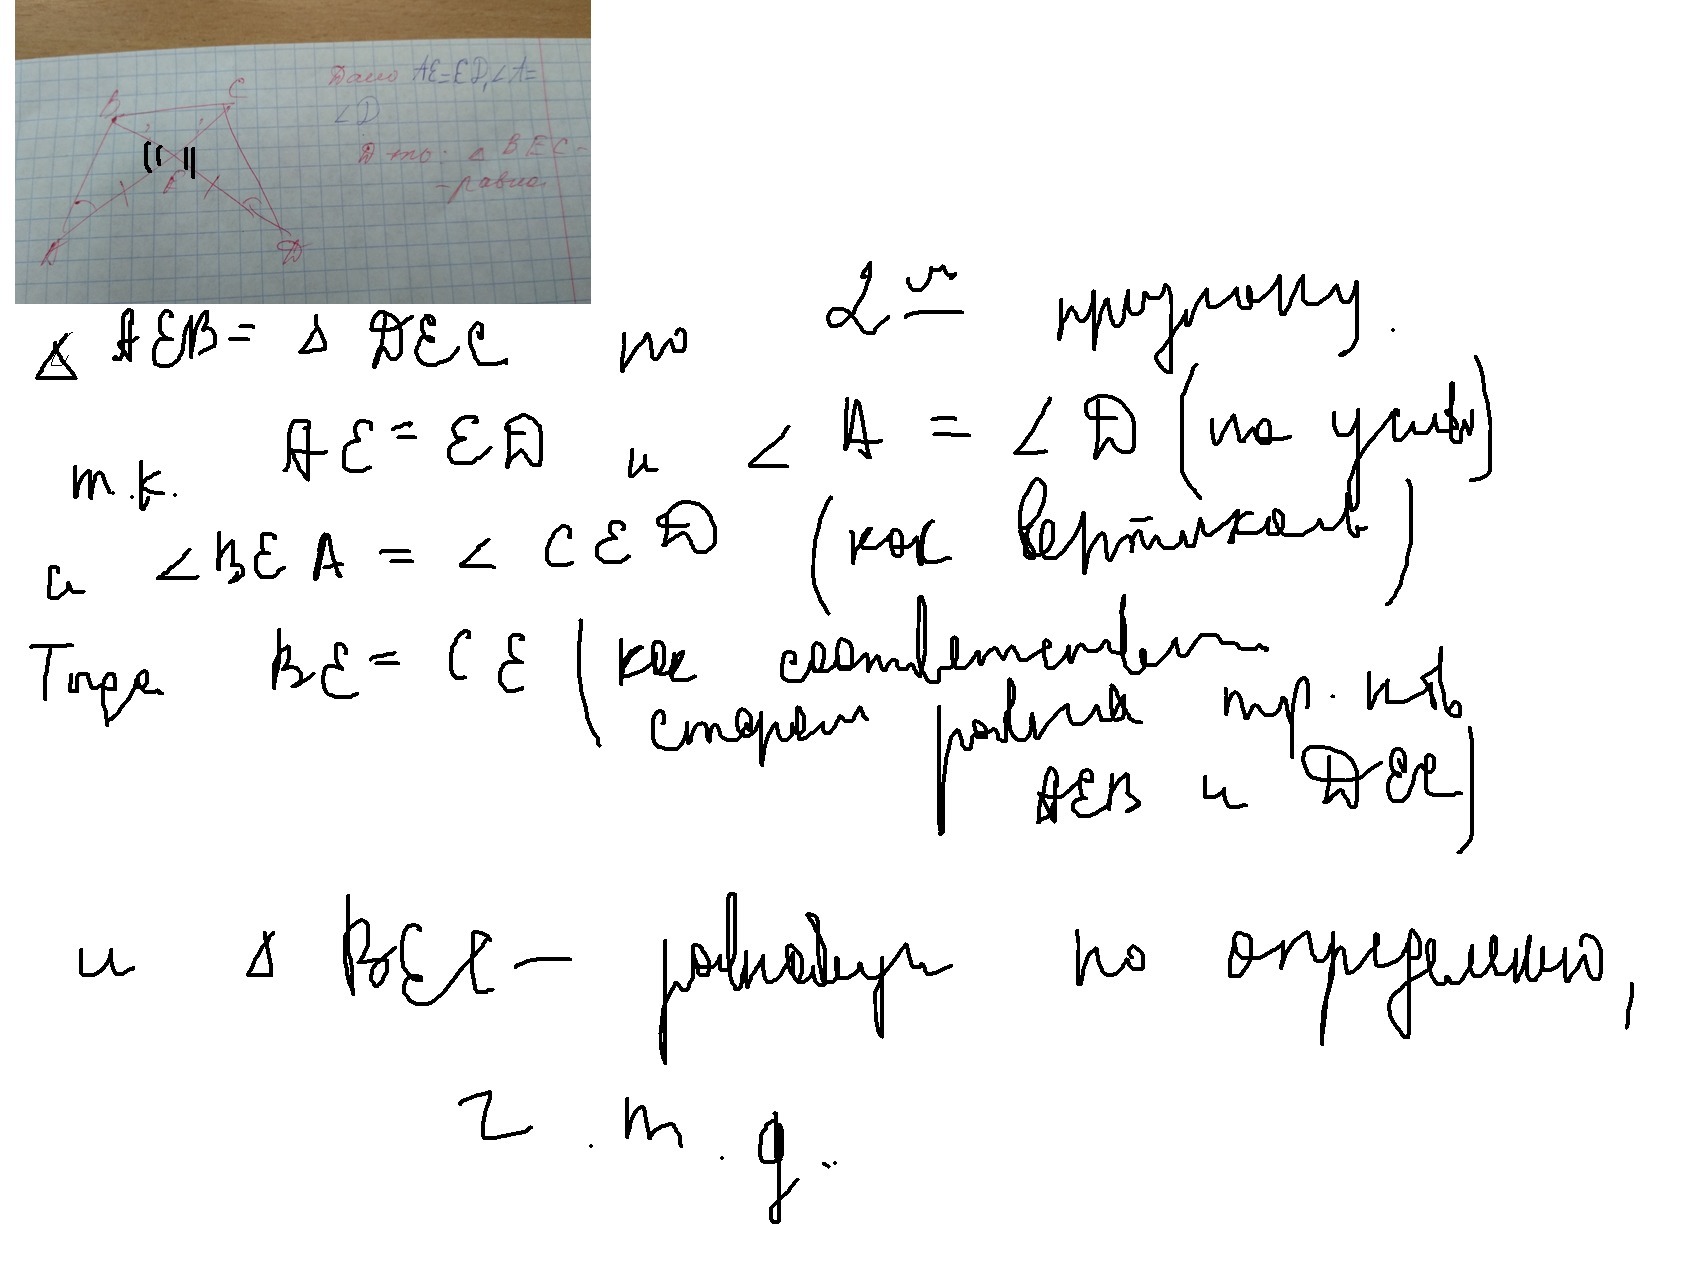 B C Дано AE=ED, ∠A=
∠D
Д-ть: △ BEC-
E -равно.
A D
△ AEB = △ DEC по 2му признаку.
т.к. AE = ED и ∠ A = ∠ D (по услов)
и ∠BEA = ∠ CED (как вертикальн)
Тогда BE = CE (как соответствен
сторон равных тр.-ков
AEB и DEC)
и △ BEC - равнобедр по определению,
ч.т.д.